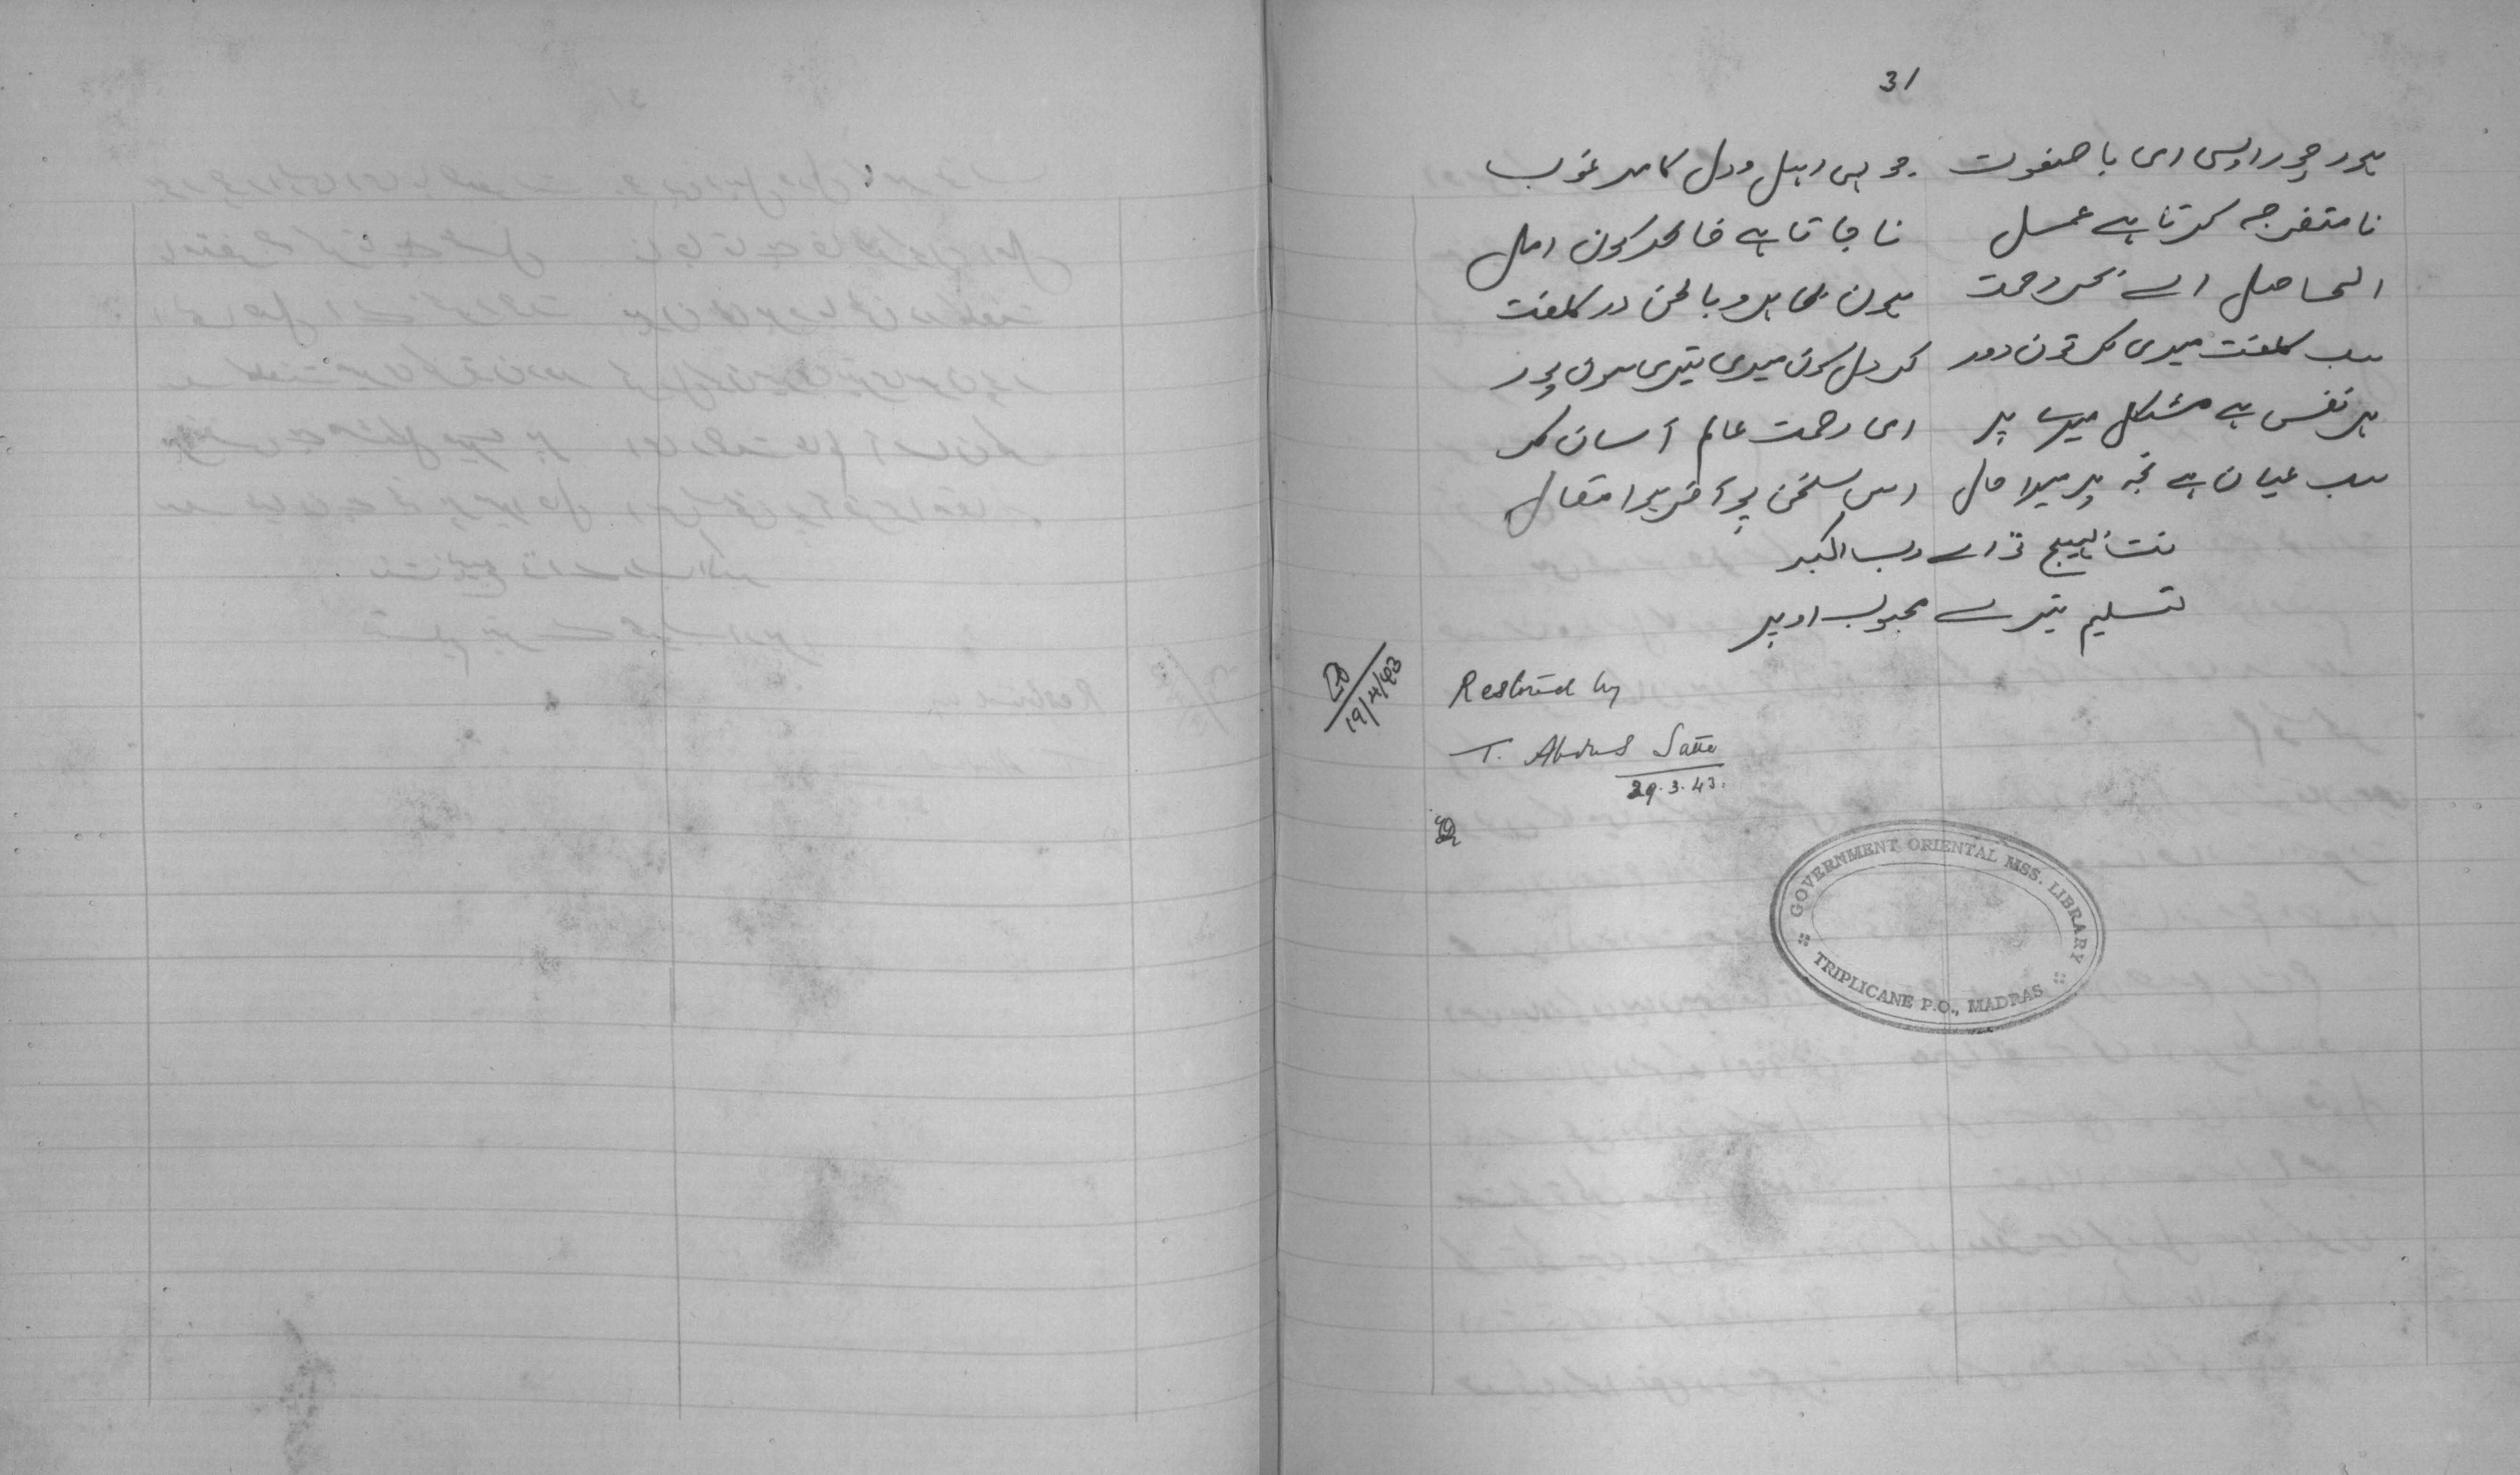 31
ہور چور اوسی ای با صفوت جو ہی اہل ودل کا مرغوب
نا متفرجہ کرتا ہے عمل نا جاتا ہے خالد کون امل
الحاصل اے بحر رحمت ہون ظاہر و باطن در کلفت
سب کلفت میری کر تون دور کر دل کون میری تیری سون پور
ہر نفس ہے مشکل میرے پر ای رحمت عالم آسان کر
سب عیان ہے تجہ پر میرا حال اس سخن پر آخر ہوا مقال
نت بھیج تو اے رب اکبر
تسلیم تیرے محبوب اوپر
19/4/43
Restored by
T. Abdus Satta
29.3.43.
GOVERNMENT ORIENTAL MSS. LIBRARY
TRIPLICANE P.O., MADRAS